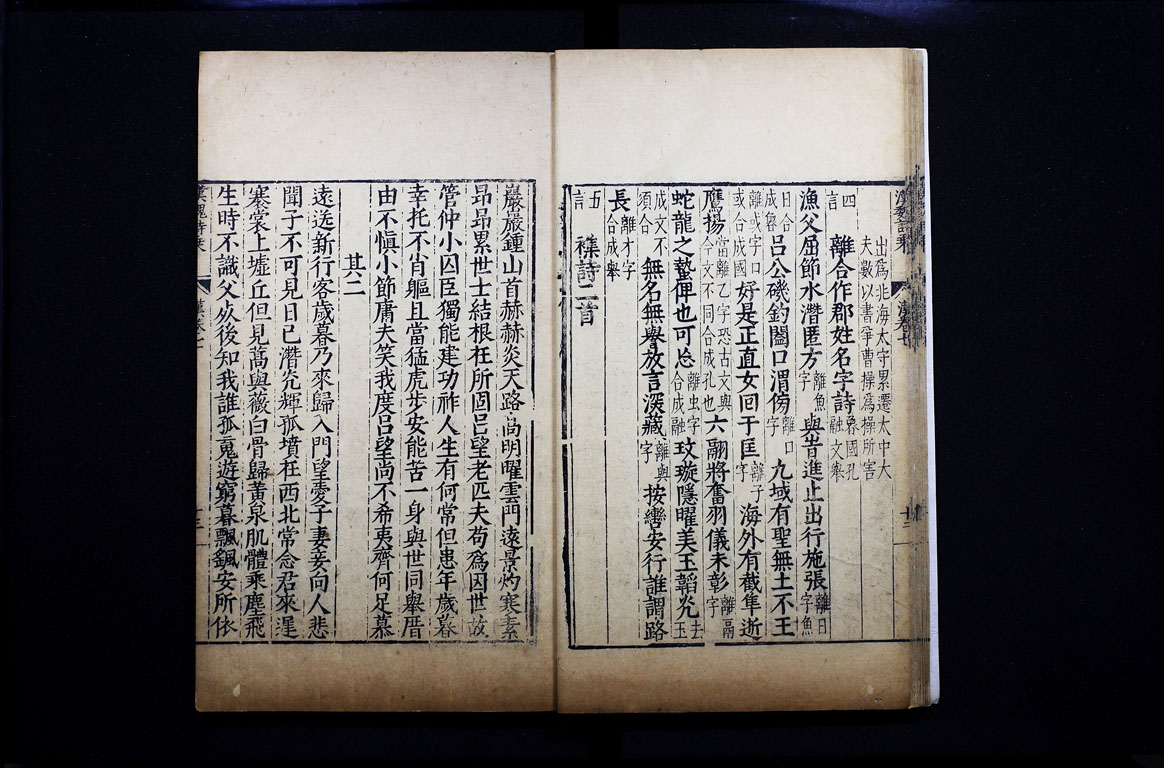 出為北海太守累遷太中大
夫數以書爭曹操為操所害
四言 離合作郡姓名字詩 魯國孔融文舉
漁父屈節水潛匿方 離魚字 與旹進止出行施張 離日字魚
日合成魯 呂公磯釣闔口渭傍 離口字 九域有聖無土不王
離或字口或合成國 好是正直女回于匡 離子字 海外有截隼逝
鷹揚 當離乙字恐古文與今文不同合成孔也 六翮將奮羽儀未彰 離鬲字
蛇龍之蟄俾也可忘 離虫字合成融 玟璇隱曜美玉韜光 去玉
成文不須合 無名無譽放言深藏 離與字 按轡安行誰謂路
長 離才字合成舉
五言 襍詩二首
巖巖鍾山首赫赫炎天路高明曜雲門遠景灼寒素
昂昂累世士結根在所固呂望老匹夫苟為因世故
管仲小囚臣獨能建功祚人生有何常但患年歲暮
幸托不肖軀且當猛虎步安能苦一身與世同舉厝
由不慎小節庸夫笑我度呂望尚不希夷齊何足慕
其二
遠送新行客歲暮乃來歸入門望愛子妻妾向人悲
聞子不可見日已潛光輝孤墳在西北常念君來遲
褰裳上墟丘但見蒿與薇白骨歸黃泉肌體乘塵飛
生時不識父死後知我誰孤䰟遊窮暮飄颻安所依